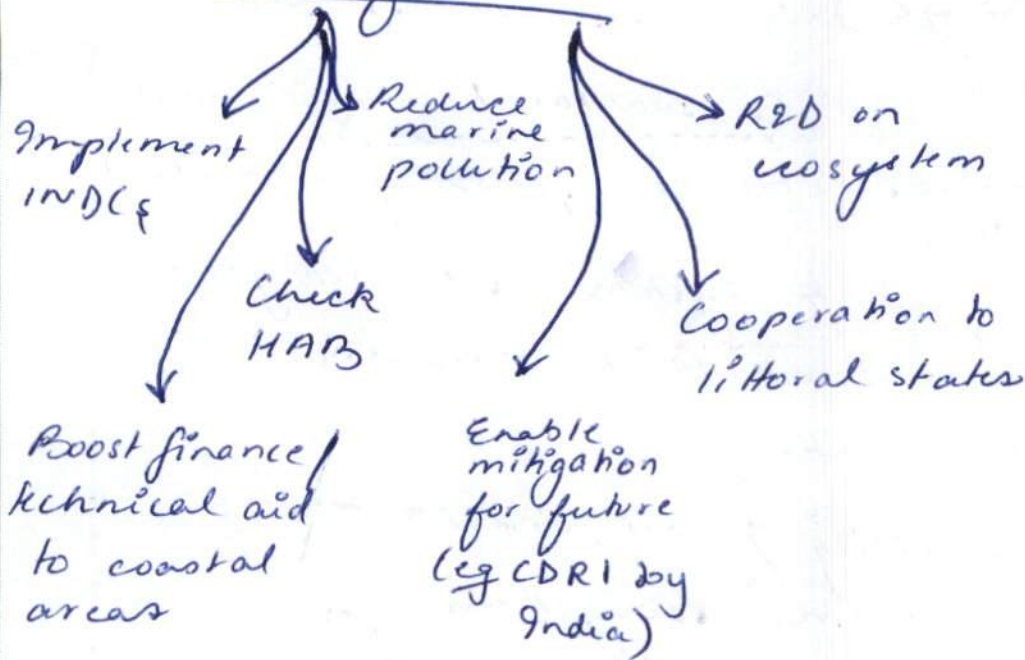 Implement
INDCs
Reduce
marine
pollution
R&D on
ecosystem
Check
HAB
Cooperation to
littoral states
Boost finance/
technical aid
to coastal
areas
Enable
mitigation
for future
(eg CDRI by
India)